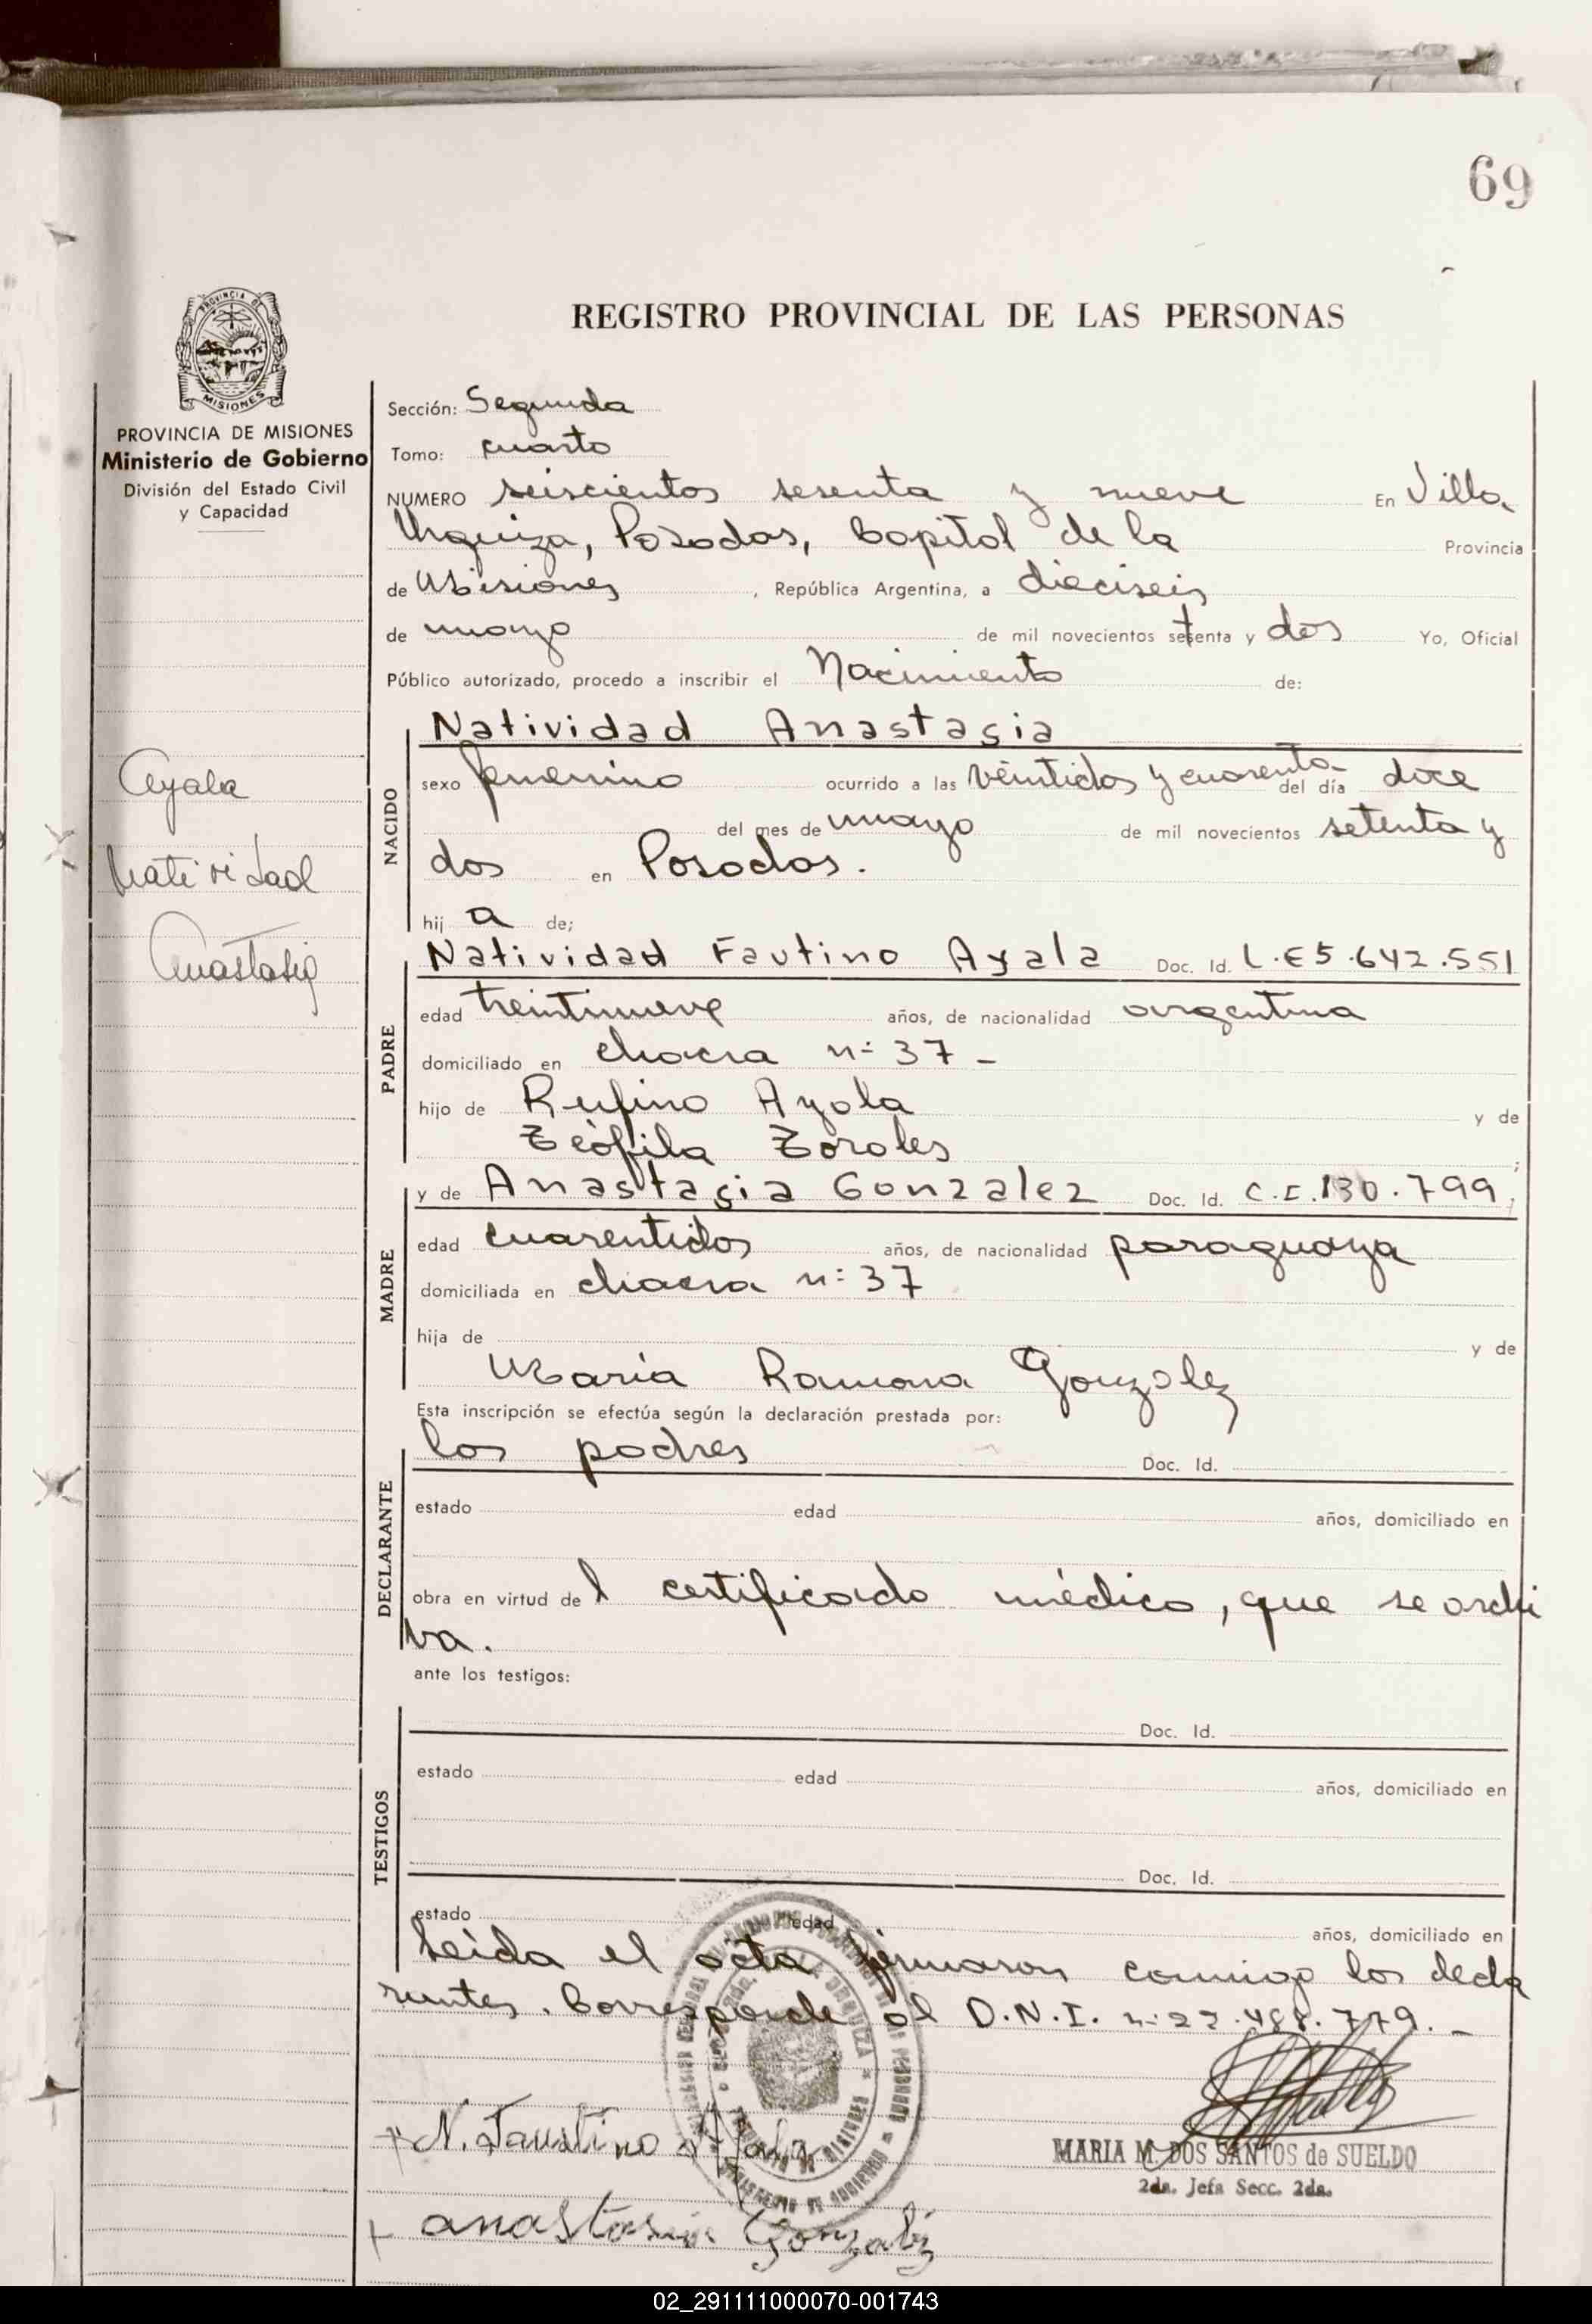 69
REGISTRO PROVINCIAL DE LAS PERSONAS
PROVINCIA DE MISIONES
Ministerio de Gobierno
División del Estado Civil
y Capacidad
Ayala
Natividad
Anastasia
Sección: Segunda
Tomo: cuarto
NUMERO seiscientos sesenta y nueve En Villa
Urquiza, Posadas, Capital de la Provincia
de Misiones, República Argentina, a dieciseis
de mayo de mil novecientos setenta y dos Yo, Oficial
Público autorizado, procedo a inscribir el Nacimiento de:
NACIDO
Natividad Anastasia
sexo femenino ocurrido a las veintidos y cuarenta del día doce
del mes de mayo de mil novecientos setenta y
dos en Posadas.
hij a de;
PADRE
Natividad Fautino Ayala Doc. Id. L.E 5.642.551
edad treintinueve años, de nacionalidad argentina
domiciliado en chacra n:37-
hijo de Rufino Ayala y de
Teófila Zorales ;
MADRE
y de Anastasia Gonzalez Doc. Id. C.I.130.799;
edad cuarentidos años, de nacionalidad paraguaya
domiciliada en chacra n:37
hija de y de
María Ramona Gonzalez
Esta inscripción se efectúa según la declaración prestada por:
DECLARANTE
los padres Doc. Id.
estado edad años, domiciliado en
obra en virtud de l certificado médico, que se archi
va.
ante los testigos:
TESTIGOS
Doc. Id.
estado edad años, domiciliado en
Doc. Id.
estado edad años, domiciliado en
Leida el acta firmaron conmigo los decla
rantes. Corresponde al D.N.I. n:22.488.779.-
N. Faustino Ayala
MARIA M. DOS SANTOS de SUELDO
2da. Jefa Secc. 2da.
anastasia Gonzalez
02_291111000070-001743